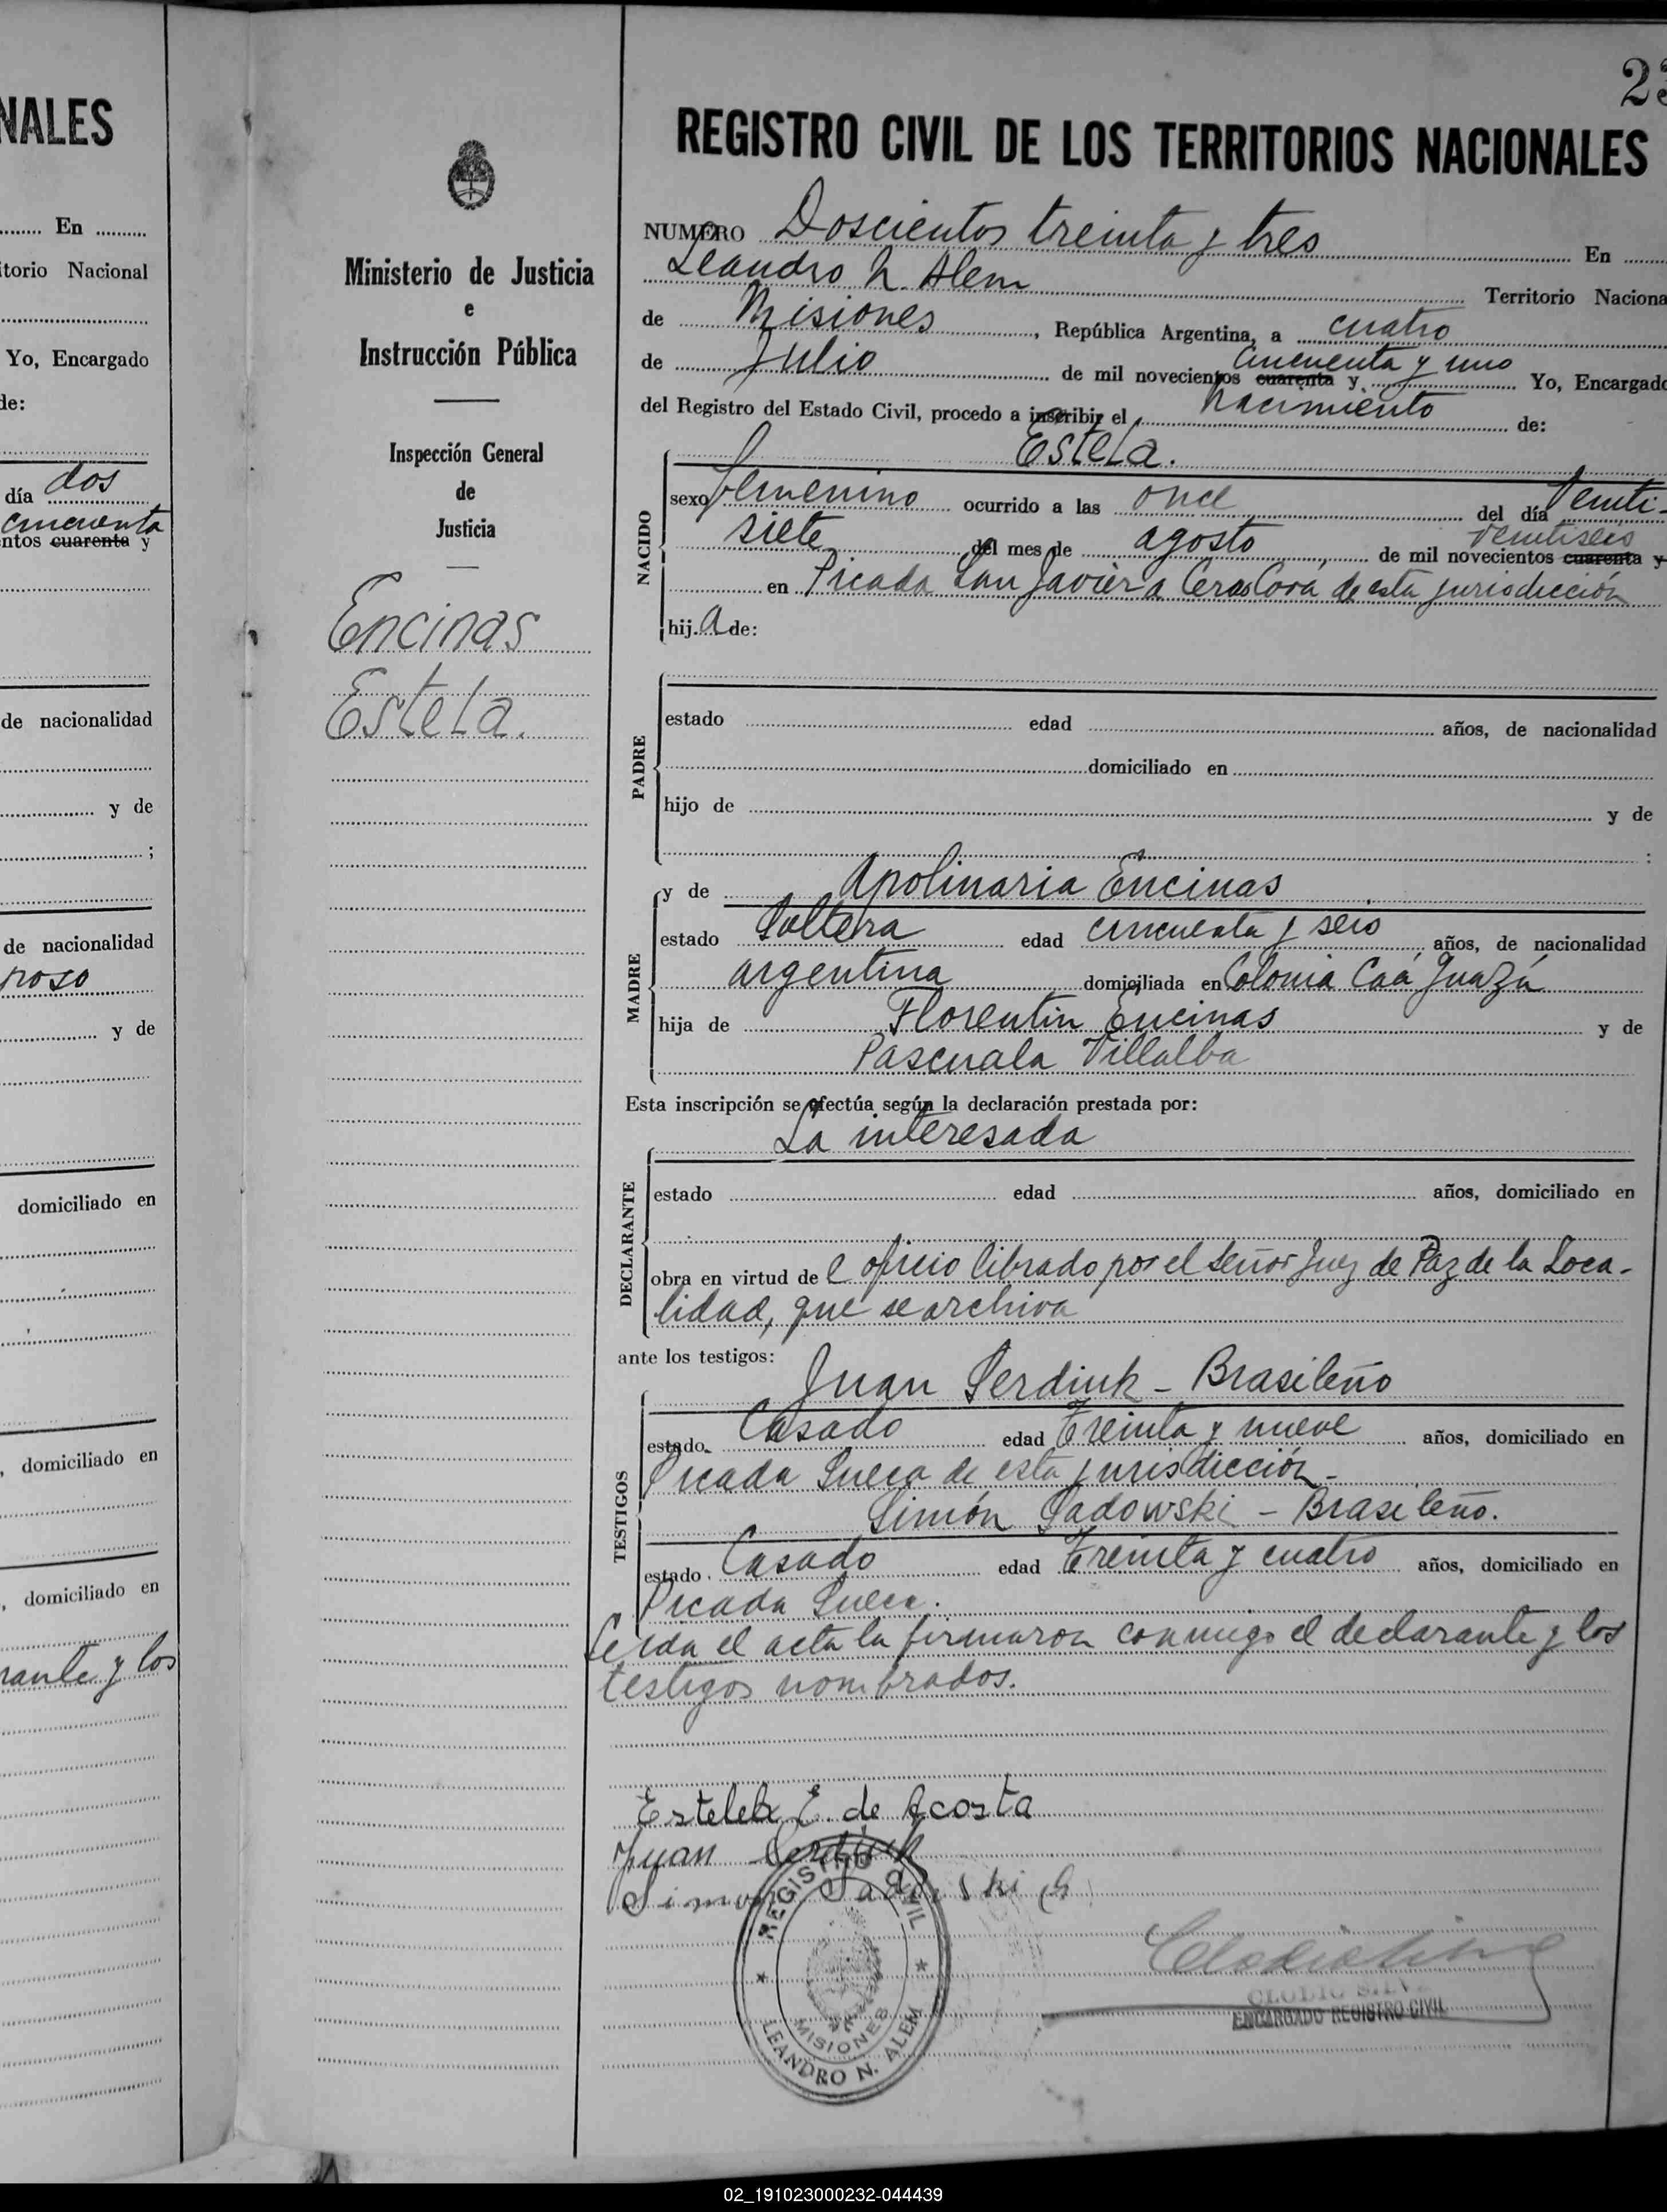 NALES
En
itorio Nacional
Yo, Encargado
de:
día dos
cincuenta
ntos cuarenta y
de nacionalidad
y de
;
de nacionalidad
y de
domiciliado en
, domiciliado en
, domiciliado en
rante y los
Ministerio de Justicia
e
Instrucción Pública
Inspección General
de
Justicia
Encinas
Estela.
23
REGISTRO CIVIL DE LOS TERRITORIOS NACIONALES
NUMERO Doscientos treinta y tres En
Leandro N. Alem Territorio Naciona
de Misiones, República Argentina, a cuatro
de Julio de mil novecientos cuarenta y cincuenta y uno Yo, Encargado
del Registro del Estado Civil, procedo a inscribir el nacimiento de:
Estela.
NACIDO
sexo femenino ocurrido a las once del día Veinti-
siete del mes de agosto de mil novecientos cuarenta y Veintiseis
en Picada San Javier a Cerro Cora de esta jurisdicción
hij a de:
PADRE
estado edad años, de nacionalidad
domiciliado en
hijo de y de
:
MADRE
y de Apolinaria Encinas
estado Soltera edad cincuenta y seis años, de nacionalidad
argentina domiciliada en Colonia Caá Guazú
hija de Florentin Encinas y de
Pascuala Villalba
Esta inscripción se efectúa según la declaración prestada por:
La interesada
DECLARANTE
estado edad años, domiciliado en
obra en virtud de l oficio librado por el Señor Juez de Paz de la Loca-
lidad, que se archiva
ante los testigos:
TESTIGOS
Juan Serdiuk - Brasileño
estado Casado edad Treinta y nueve años, domiciliado en
Picada Sueca de esta jurisdicción-
Simón Sadowski - Brasileño.
estado Casado edad Treinta y cuatro años, domiciliado en
Picada Sueca.
Leida el acta la firmaron conmigo el declarante y los
testigos nombrados.
Estela E. de Acosta
Juan Serdiuk
Simon Sadowski
REGISTRO CIVIL
MISIONES
LEANDRO N. ALEM
CLODIO SILVA
ENCARGADO REGISTRO CIVIL
02_191023000232-044439